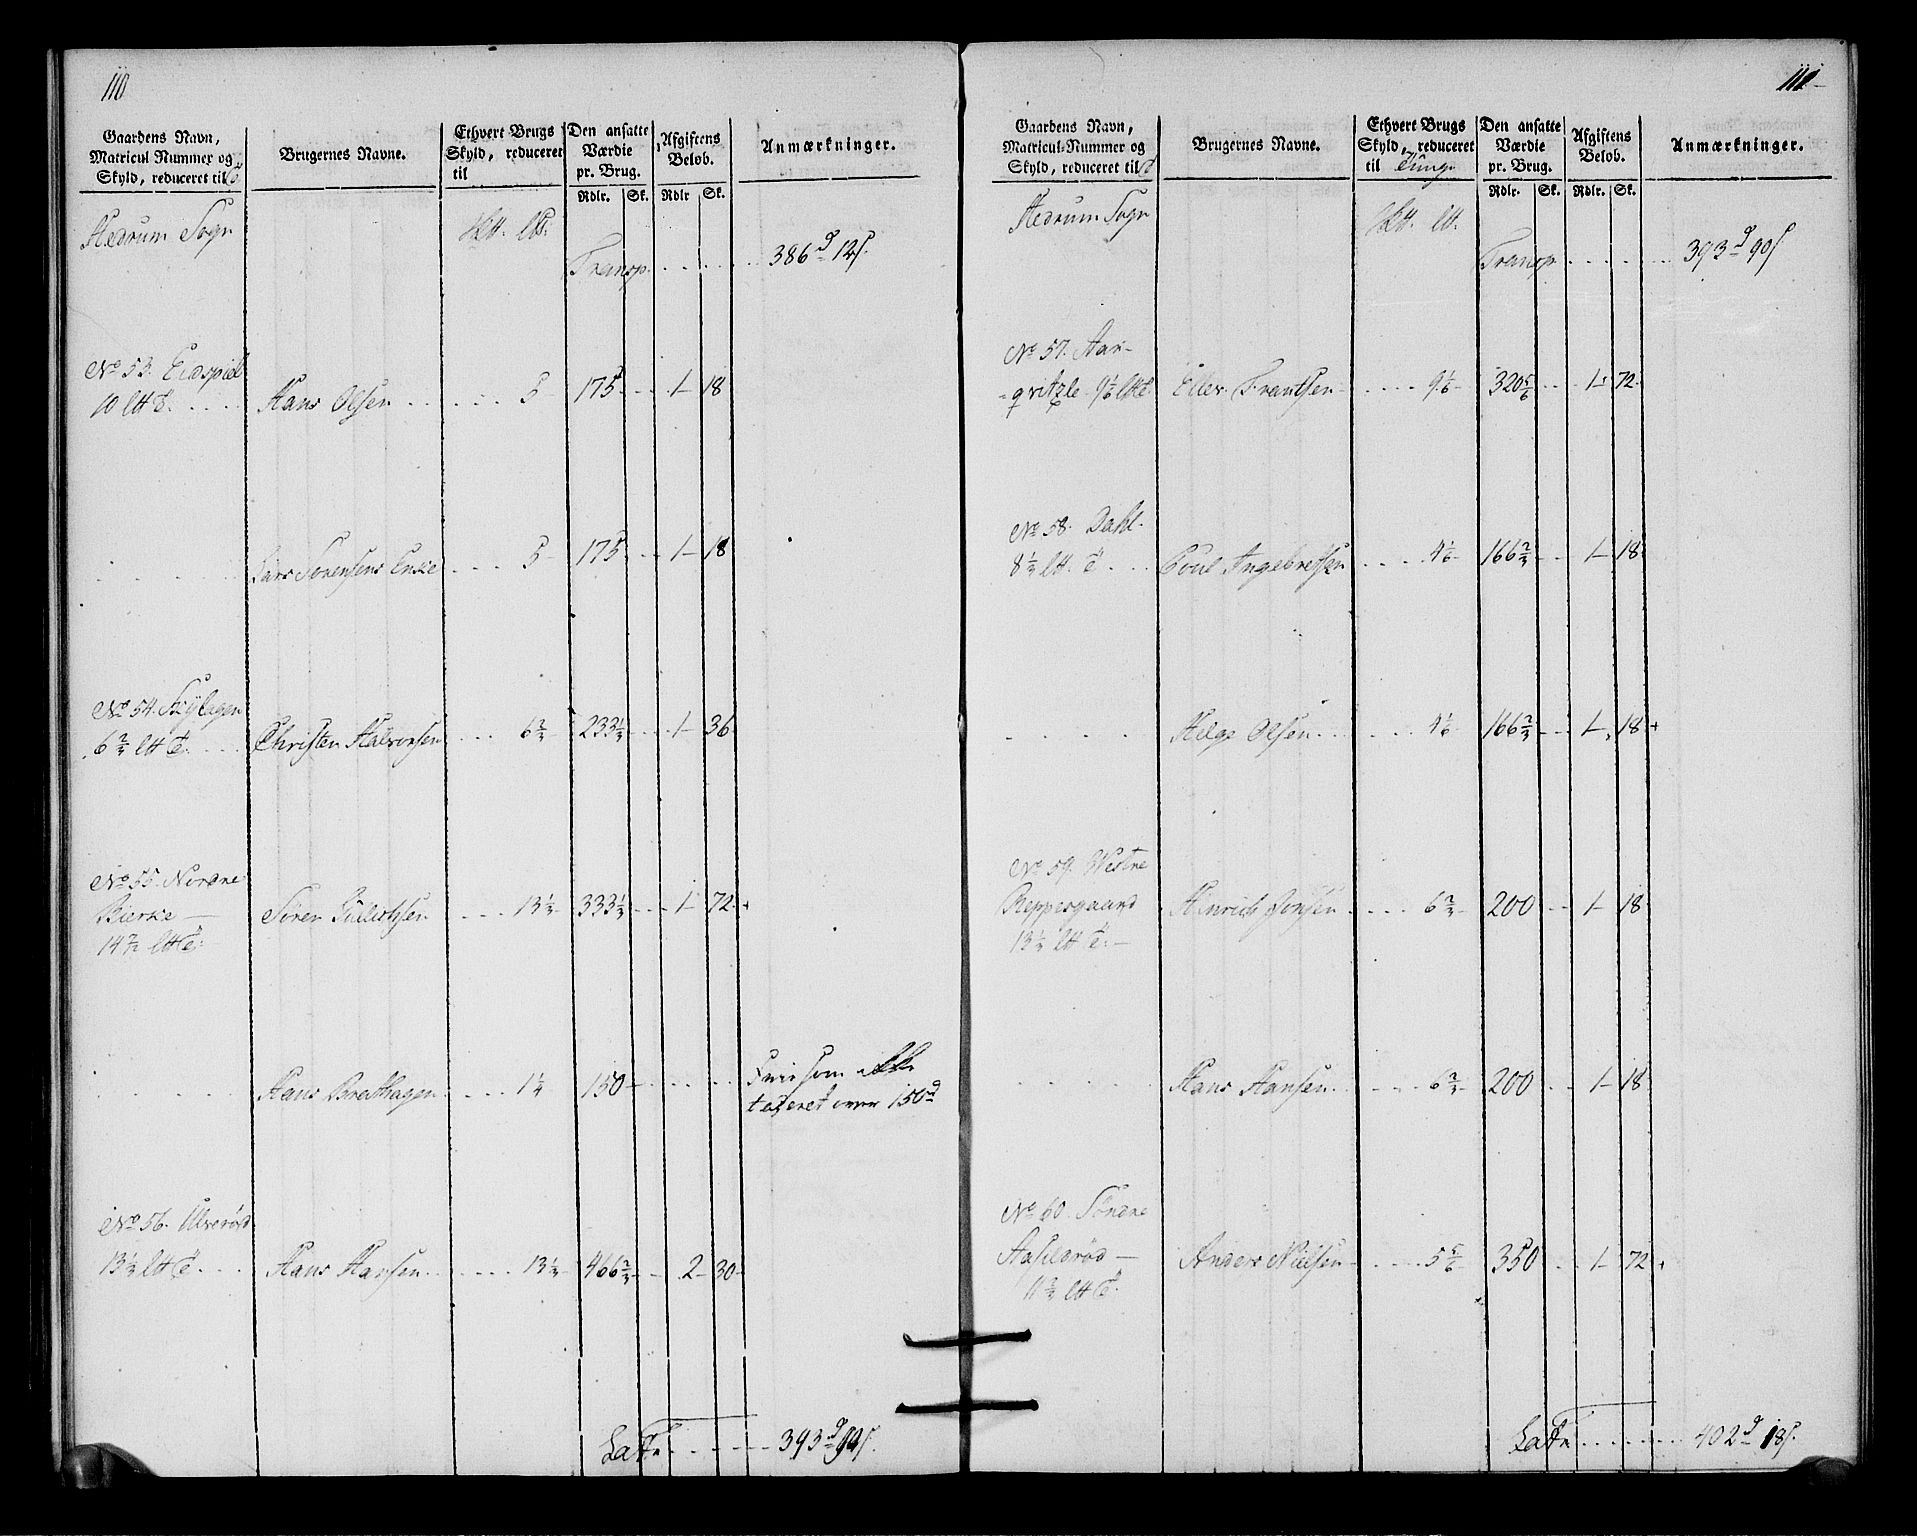 110
Gaardens Navn,
Matricul Nummer og
Skyld, reduceret til
Brugernes Navne.
Ethvert Brugs
Skyld, reduceret
til
Den ansatte
Værdie
pr. Brug.
Rdlr. Sk.
Afgiftens
Beløb.
Rdlr Sk.
Anmærkninger.
Hedrum Sogn
Transp. 386 12
No 53. Eidspiel
10 Hans Olsen 5 175 1 18
Lars Sørensens Enke 5 175 1 18
No 54.
6 2/3 Christen Halvorsen 6 2/3 233 1/3 1 36
No 55. Nordre
Bierke Søren 13 1/3 333 1/3 1 72
14 7/12
Hans 1 1/4 150 Frie som ikke
taxeret over 150
No 56. Ulverød
13 1/3 Hans Hansen 13 1/3 466 2/3 2 30
Late 393 90
111
Gaardens Navn,
Matricul-Nummer og
Skyld, reduceret til
Brugernes Navne.
Ethvert Brugs
Skyld, reduceret
til Tunge
Den ansatte
Værdie
pr. Brug.
Rdlr. Sk.
Afgiftens
Beløb.
Rdlr. Sk.
Anmærkninger.
Hedrum Sogn
Transp. 393 90
No 57.
9 1/6 Eller Frantsen 9 1/6 320 5/6 1 72
No 58. Dahl
8 1/3 Poul Ingebretsen 4 1/6 166 2/3 1 18
Helge Olsen 4 1/6 166 2/3 1 18
No 59. Westre
Reppesgaard Hinrich Jonsen 6 2/3 200 1 18
13 1/3
Hans Hansen 6 2/3 200 1 18
No 60. Søndre
Anders Nielsen 5 5/6 350 1 72
11 2/3
Late 402 18